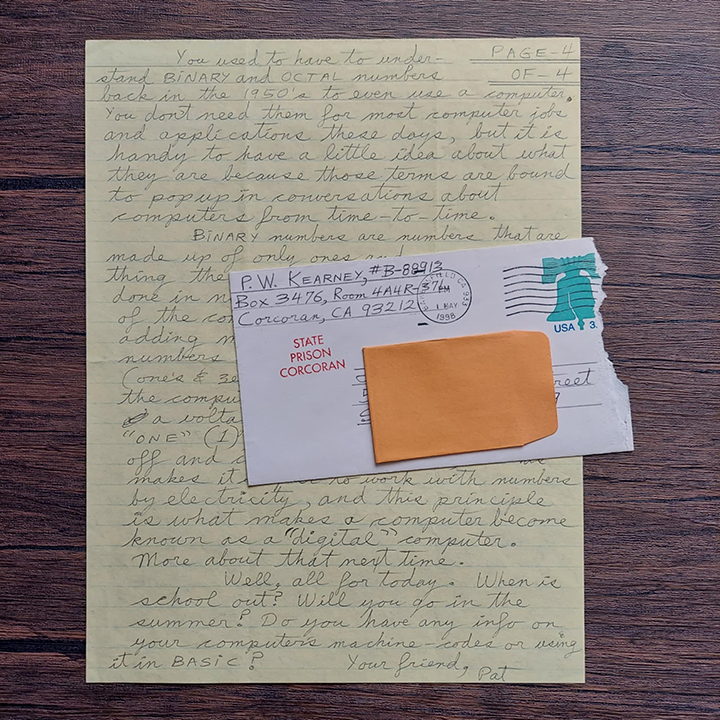 You used to have to under-
PAGE-4
OF-4
stand BINARY and OCTAL numbers
back in the 1950's to even use a computer.
You don't need them for most computer jobs
and applications these days, but it is
handy to have a little idea about what
they are because those terms are bound
to pop up in conversations about
computers from time-to-time.
BINARY numbers are numbers that are
made up of only ones and
thing the
done in n
of the co
adding m
numbers
(one's &
the compu
a volta
"ONE" (1)
off and
makes it to work with numbers
by electricity, and this principle
is what makes a computer become
known as a "digital" computer.
More about that next time.
Well, all for today. When is
school out? Will you go in the
summer? Do you have any info on
your computer's machine-codes or using
it in BASIC?
Your friend,
Pat
P. W. KEARNEY, #B-88913
Box 3476, Room 4A4R-37L
Corcoran, CA 93212
STATE
PRISON
CORCORAN
CA 933
PM
1 MAY
1998
USA 3
reet